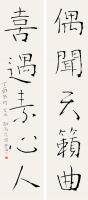 偶聞天籟曲
喜遇素心人